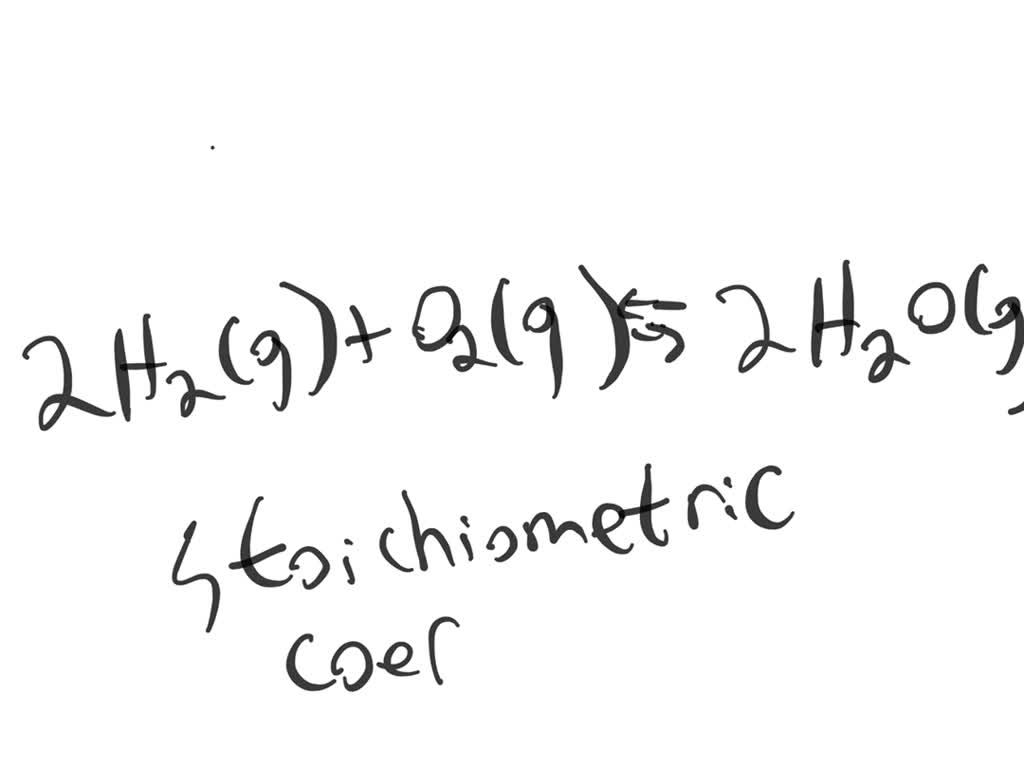 2H₂(g)+O₂(g)⇆2H₂O(g
stoichiometric
coef